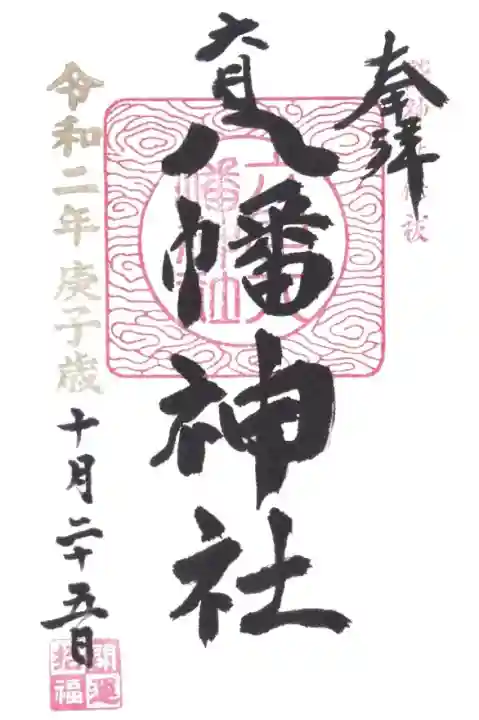 奉拝
六月八幡神社
令和二年庚子歳
十月二十五日
開運
招福